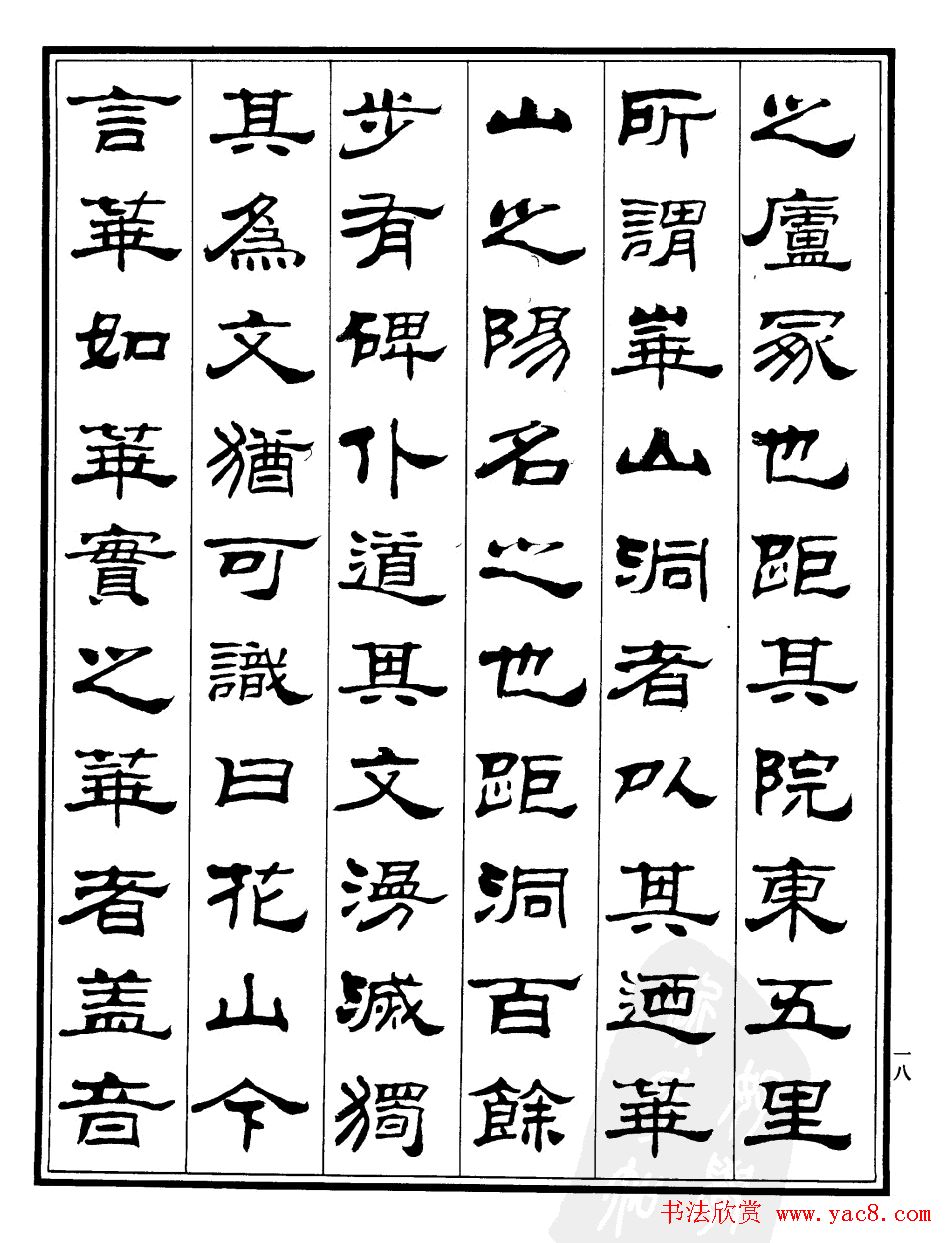 之廬冢也距其院東五里
所謂崋山洞者以其迺華
山之陽名之也距洞百餘
步有碑仆道其文漫滅獨
其為文猶可識曰花山今
言華如華實之華者盖音
一八
书法欣赏 www.yac8.com